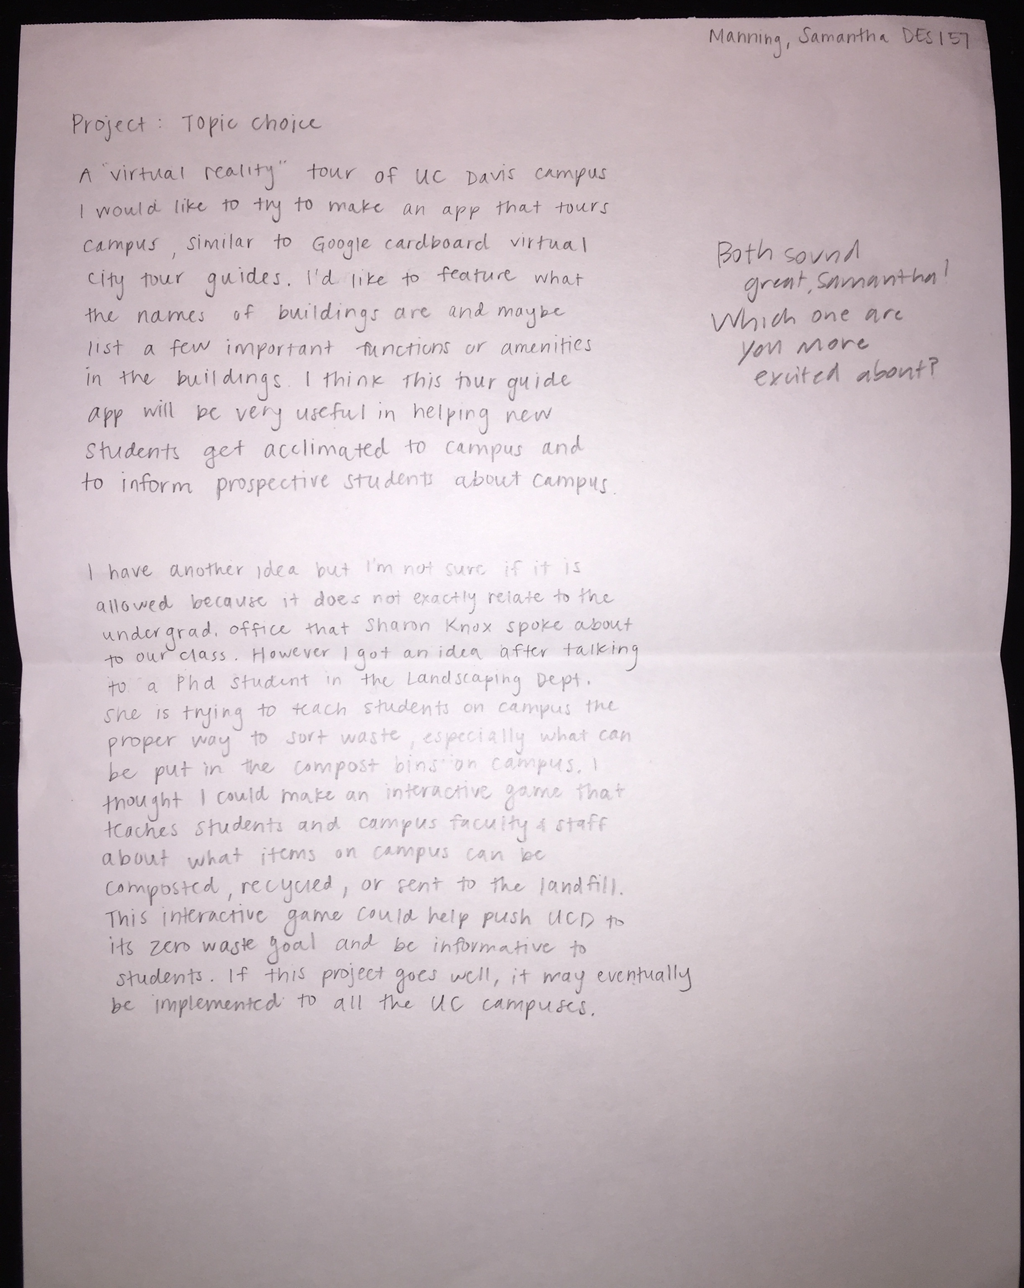 Manning, Samantha DES157
Project: Topic Choice
A "virtual reality" tour of UC Davis campus
I would like to try to make an app that tours
campus, similar to Google cardboard virtual
city tour guides. I'd like to feature what
the names of buildings are and maybe
list a few important functions or amenities
in the buildings. I think this tour guide
app will be very useful in helping new
students get acclimated to campus and
to inform prospective students about campus.
Both sound
great, Samantha!
Which one are
you more
excited about?
I have another idea but I'm not sure if it is
allowed because it does not exactly relate to the
undergrad. office that Sharon Knox spoke about
to our class. However I got an idea after talking
to a Phd student in the Landscaping Dept.
She is trying to teach students on campus the
proper way to sort waste, especially what can
be put in the compost bins on campus. I
thought I could make an interactive game that
teaches students and campus faculty & staff
about what items on campus can be
composted, recycled, or sent to the landfill.
This interactive game could help push UCD to
its zero waste goal and be informative to
students. If this project goes well, it may eventually
be implemented to all the UC campuses.